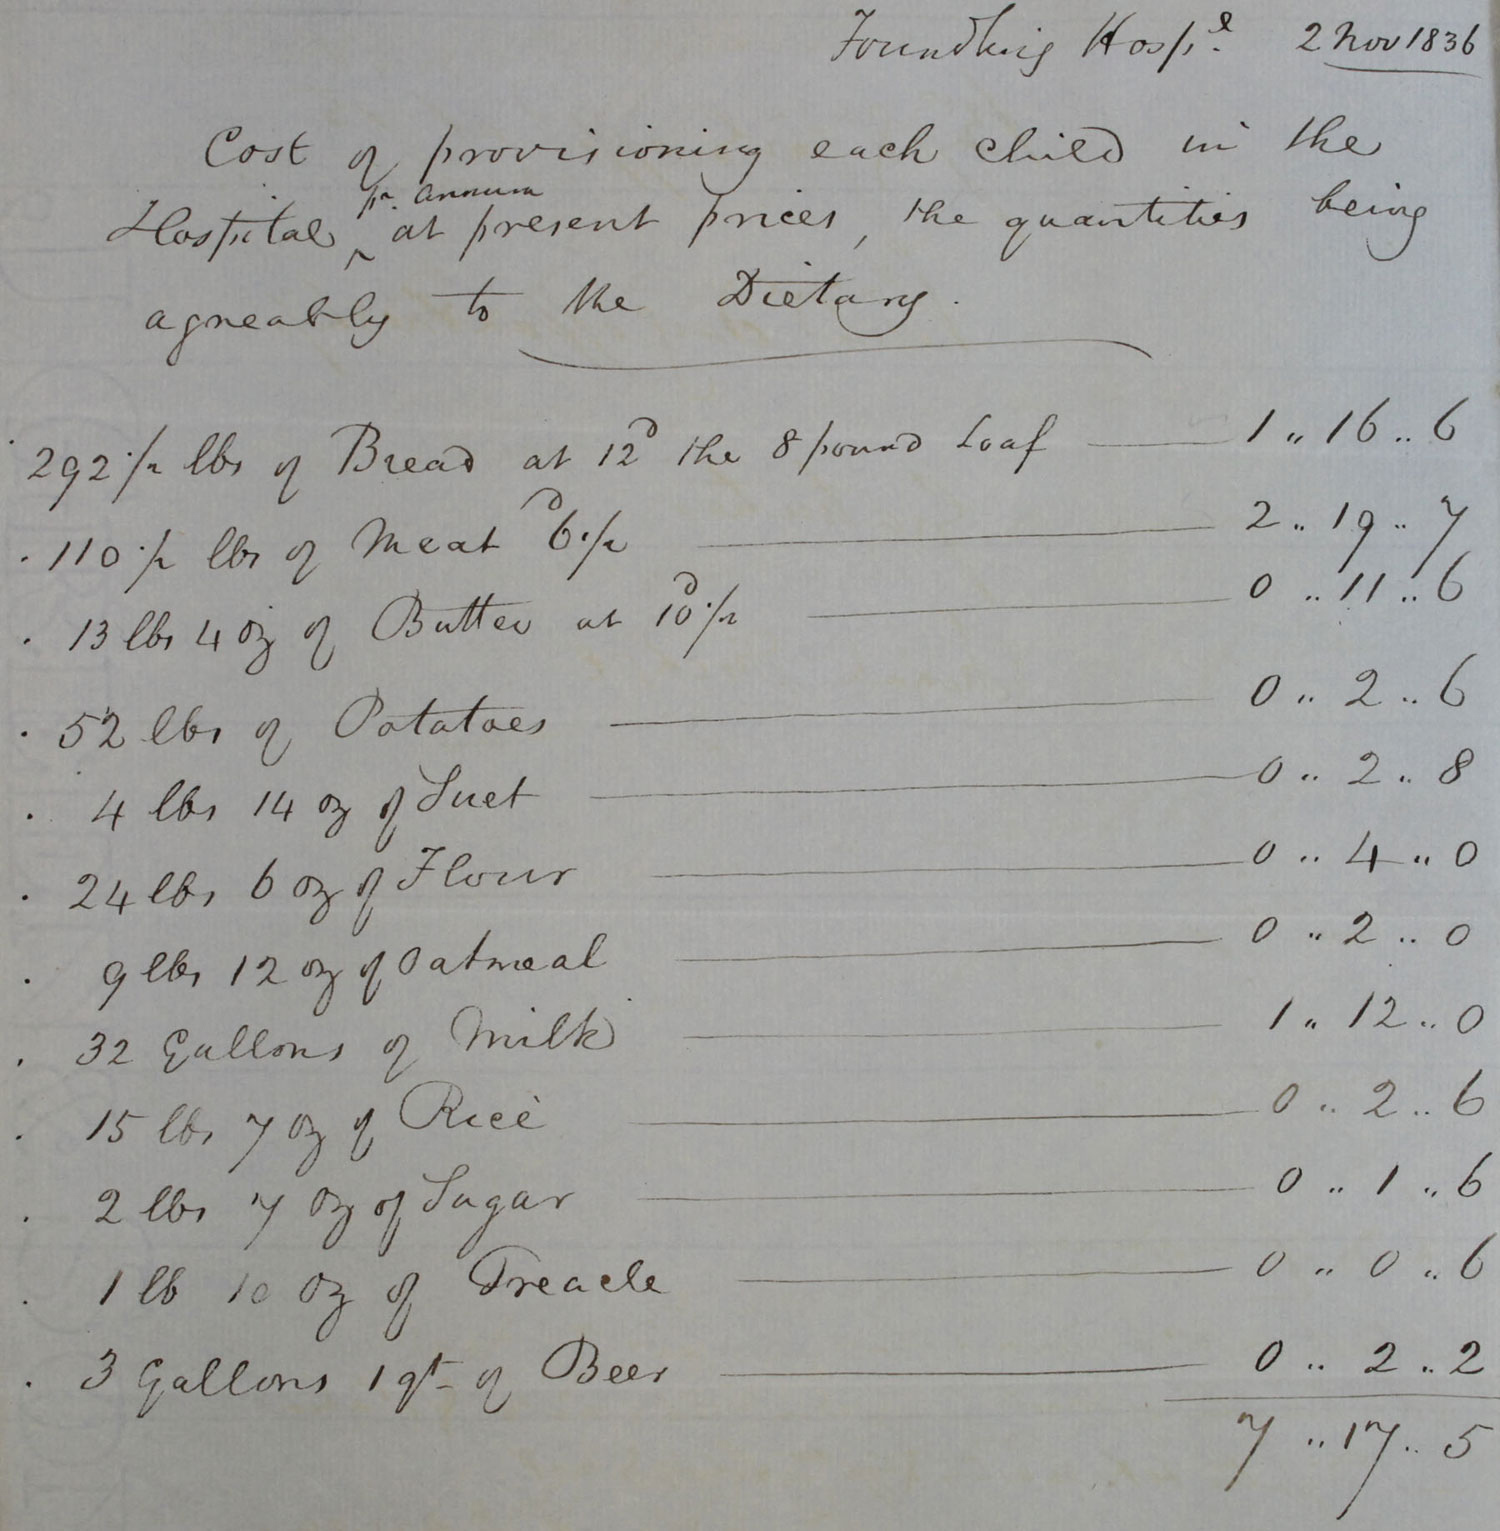 Foundling Hospl. 2 Nov 1836
Cost of provisioning each child in the
Hospital pr. annum at present prices, the quantities being
agreably to the Dietary.
292 1/2 lbs of Bread at 12d the 8 pound Loaf 1 .. 16 .. 6
110 1/2 lbs of Meat 6d 1/2 2 .. 19 .. 7
13 lbs 4 oz of Butter at 10d 1/2 0 .. 11 .. 6
52 lbs of Potatoes 0 .. 2 .. 6
4 lbs 14 oz of Suet 0 .. 2 .. 8
24 lbs 6 oz of Flour 0 .. 4 .. 0
9 lbs 12 oz of Oatmeal 0 .. 2 .. 0
32 Gallons of Milk 1 .. 12 .. 0
15 lbs 7 oz of Rice 0 .. 2 .. 6
2 lbs 7 oz of Sugar 0 .. 1 .. 6
1 lb 10 oz of Treacle 0 .. 0 .. 6
3 Gallons 1 qt of Beer 0 .. 2 .. 2
7 .. 17 .. 5